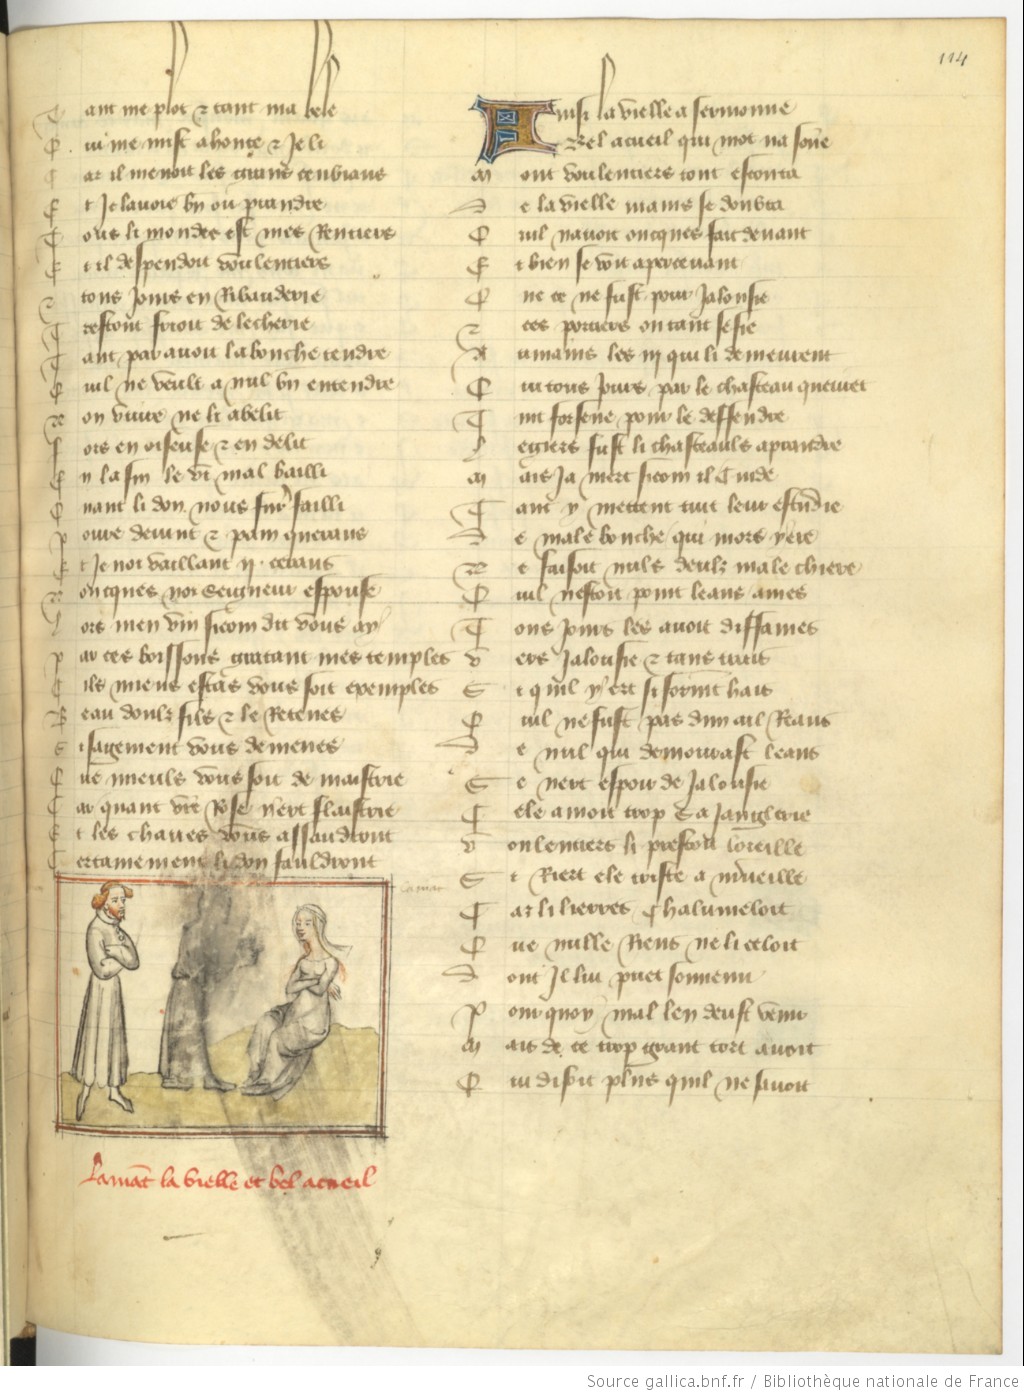 114
Tant me plot et tant ma bele
Qui me mist a honte et Je li
Car il menoit les grans cenbiaus
Et Je lavoie bn ou prandre
Tous li mondes est mes Rentiers
Et il despendoit voulentiers
et tous jours en Ribauderie
Testoit frioit de lecherie
Tant par avoit la bouche tendre
Quil ne veult a nul bn entendre
Non vivre ne li abelit
fors en oiseuse et en delit
En la fin le vi mal bailli
Quant li don nous furent failli
povre devint et pain querans
Et Je noi vaillant ij. cerans
Noncques noi Seigneur espouse
lors men vin sicom dit vous ay
par ces boissons gratant mes temples
Cils miens estas vous soit exemples
Beau doulz fils et le Retenes
Si sagement vous demenes
Que mieuls vous soit de maistrie
Car quant vre Rose yert flaistrie
Et les chanes vous assaudront
Certainement li don fauldront
Lamāt la vielle et bel acueil
Ainsi la vielle a sermonne
Bel acueil qui mot na sone
mont voulentiers tout escouta
De la vielle mains se doubta
Quil navoit oncques fait devant
Et bien se voit apercevant
Que ce ne fust pour Jalousie
et ces portiers ou tant se fie
Aumains les iij qui li demeurent
Qui tous jours par le chasteau queurent
Tuit forsene pour le deffendre
legiers fust li chasteauls aprandre
mais Ja niert sicom il Cuide
Tant y mettent tuit leur estudie
De male bouche qui mors yere
Ne faisoit nuls deulz male chiere
Quil nestoit point leans ames
Tous jours les avoit diffames
vers Jalousie et tous trais
Si quil yert si forment hais
Quil ne fust pas dun ail Reans
De nul qui demourast leans
Se nert espoir de Jalousie
Cele amoit trop sa Janglerie
voulentiers li prestoit loreille
Si Riert ele triste a merveille
Car li lierres Chalumeloit
Que nulle Riens ne li celoit
Dont Il lui puet souvenir
Pour quoy mal len deust venir
mais de ce trop grant tort avoit
Qui disoit plus quil ne savoit
Source gallica.bnf.fr / Bibliothèque nationale de France